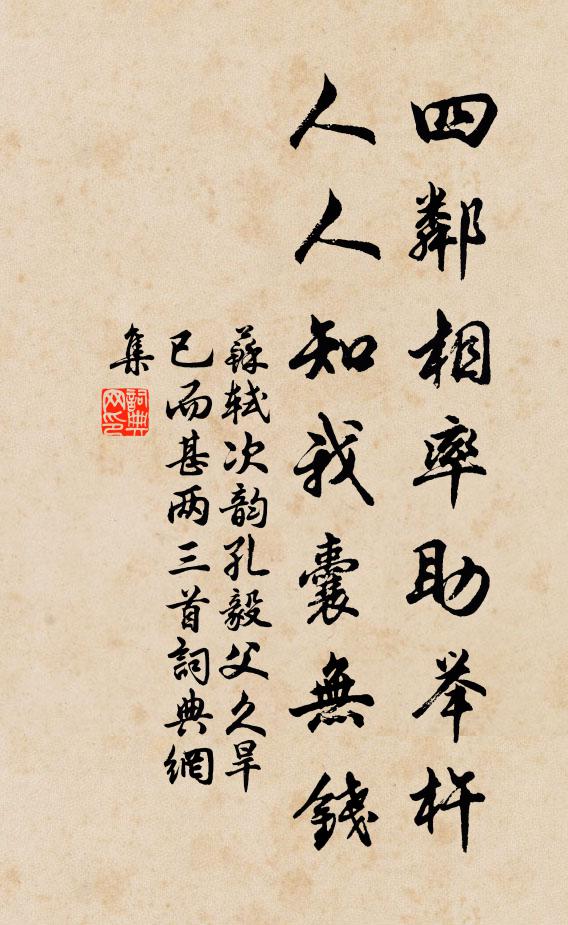 四鄰相率助举杵
人人知我囊無錢
蘇軾次韵孔毅父久旱
已而甚两三首詞典網
集
詞典网印